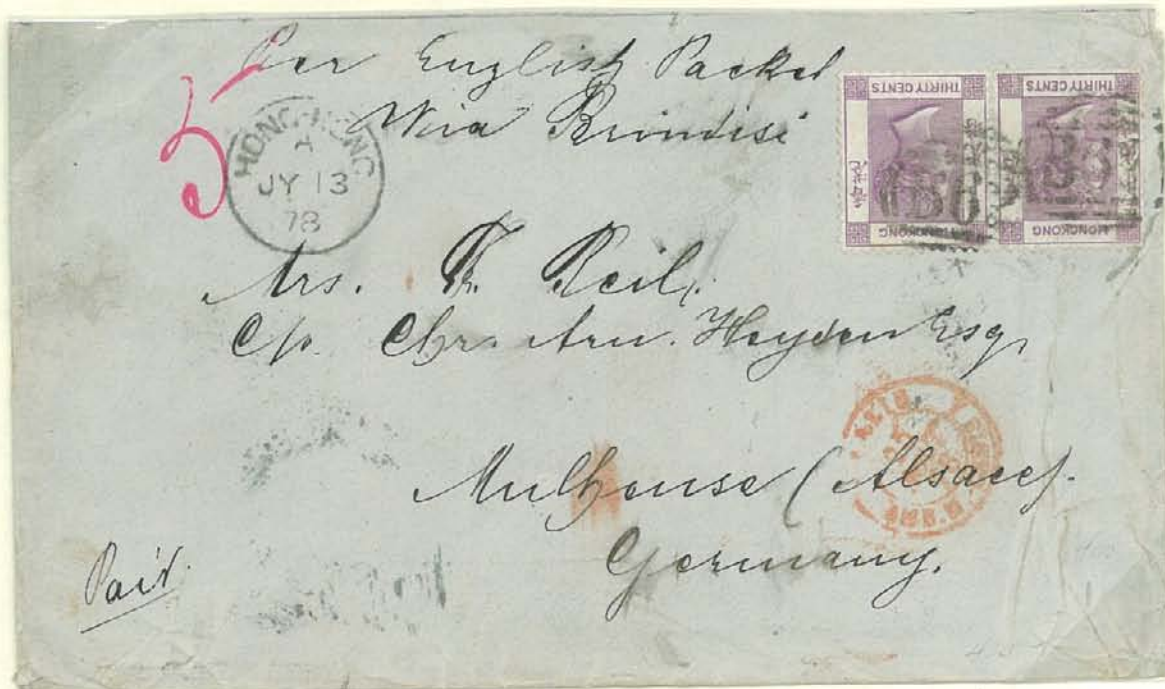 Per English Packet
Via Brindisi
5
HONG-KONG
A
JY 13
78
THIRTY CENTS
THIRTY CENTS
HONGKONG
HONGKONG
B62
B62
Mrs. F. Reil,
C/o. Chr. Arn. Heyden Esq.
Mulhouse (Alsace).
Germany.
Paid.